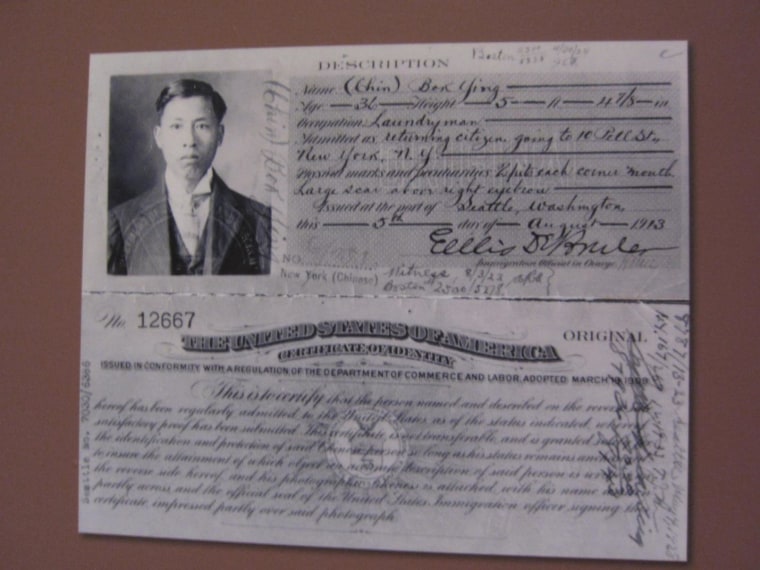 DESCRIPTION
Boston
Name (Chin) Bok Ying
Age 36 Height 5 ft 4 7/8 in
Occupation Laundryman
Admitted as returning citizen, going to 10 Pell St.,
New York, N.Y.
Physical marks and peculiarities 2 pits each corner mouth
Large scar above right eyebrow
Issued at the port of Seattle, Washington,
this 5th day of August 1913
Immigration Official in Charge
NO.
New York (Chinese) Witness 8/3/23
Boston
(Chin) Bok Ying
No. 12667
ORIGINAL
THE UNITED STATES OF AMERICA
CERTIFICATE OF IDENTITY
ISSUED IN CONFORMITY WITH A REGULATION OF THE DEPARTMENT OF COMMERCE AND LABOR, ADOPTED MARCH 19 1909
This is to certify that the person named and described on the reverse
hereof has been regularly admitted to the United States, as of the status indicated, whereof
satisfactory proof has been submitted. This certificate is not transferable, and is granted
the identification and protection of said Chinese person so long as his status remains
to insure the attainment of which object an accurate description of said person is
the reverse side hereof, and his photographic likeness is attached, with his name
partly across, and the official seal of the United States Immigration officer signing this
certificate, impressed partly over said photograph.
Seattle No.